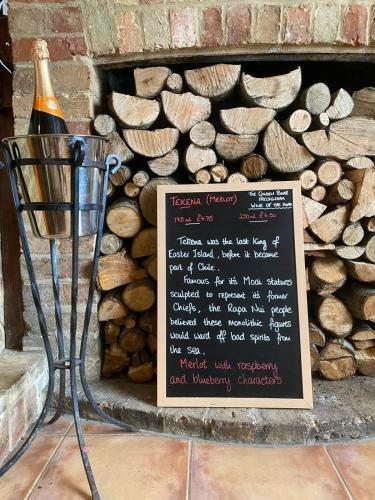 TEKENA (MERLOT)
THE GOLDEN BOAR
FRECKENHAM
WINE OF THE
175ml £4.75
250ml £6.50
Tekena was the last King of
Easter Island, before it became
part of Chile.
Famous for it's Moai statues
sculpted to represent its former
Chiefs, the Rapa Nui people
believed these monolithic figures
would ward off bad spirits from
the sea.
Merlot with raspberry
and blueberry characters